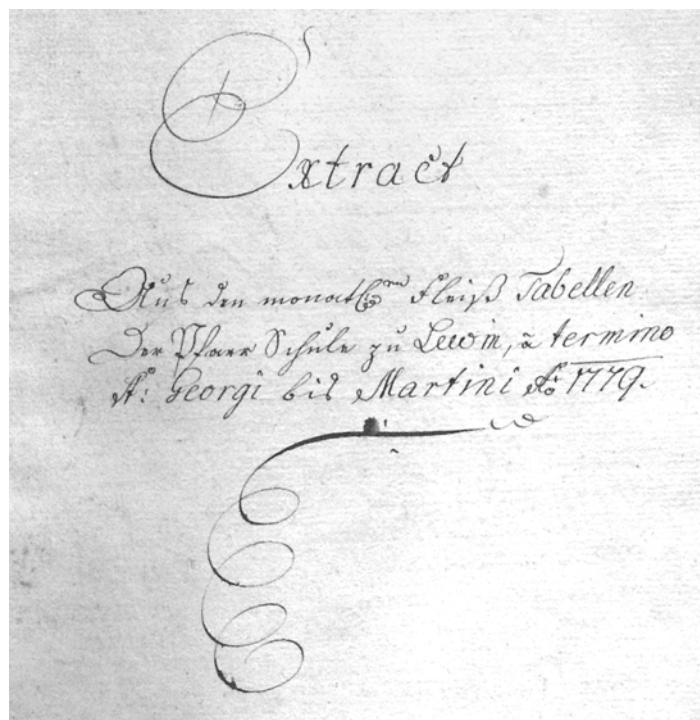 Extract
Aus den monatl. Fleiß Tabellen
Der Pfarr Schule zu Lewin, à termino
St: Georgi bis Martini Ao 1779.